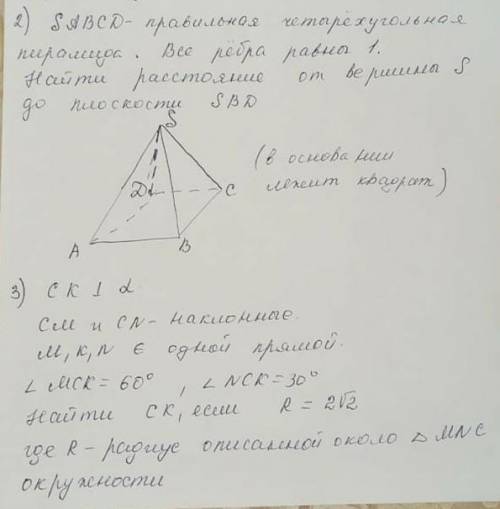 2) SABCD - правильная четырёхугольная
пирамида. Все рёбра равны 1.
Найти расстояние от вершины S
до плоскости SBD
S
(в основании
лежит квадрат)
D
C
A
B
3) CK ⊥ α
CM и CN - наклонные.
M, K, N ∈ одной прямой.
∠ MCK = 60°, ∠ NCK = 30°
Найти CK, если R = 2√2
где R - радиус описанной около △ MNC
окружности